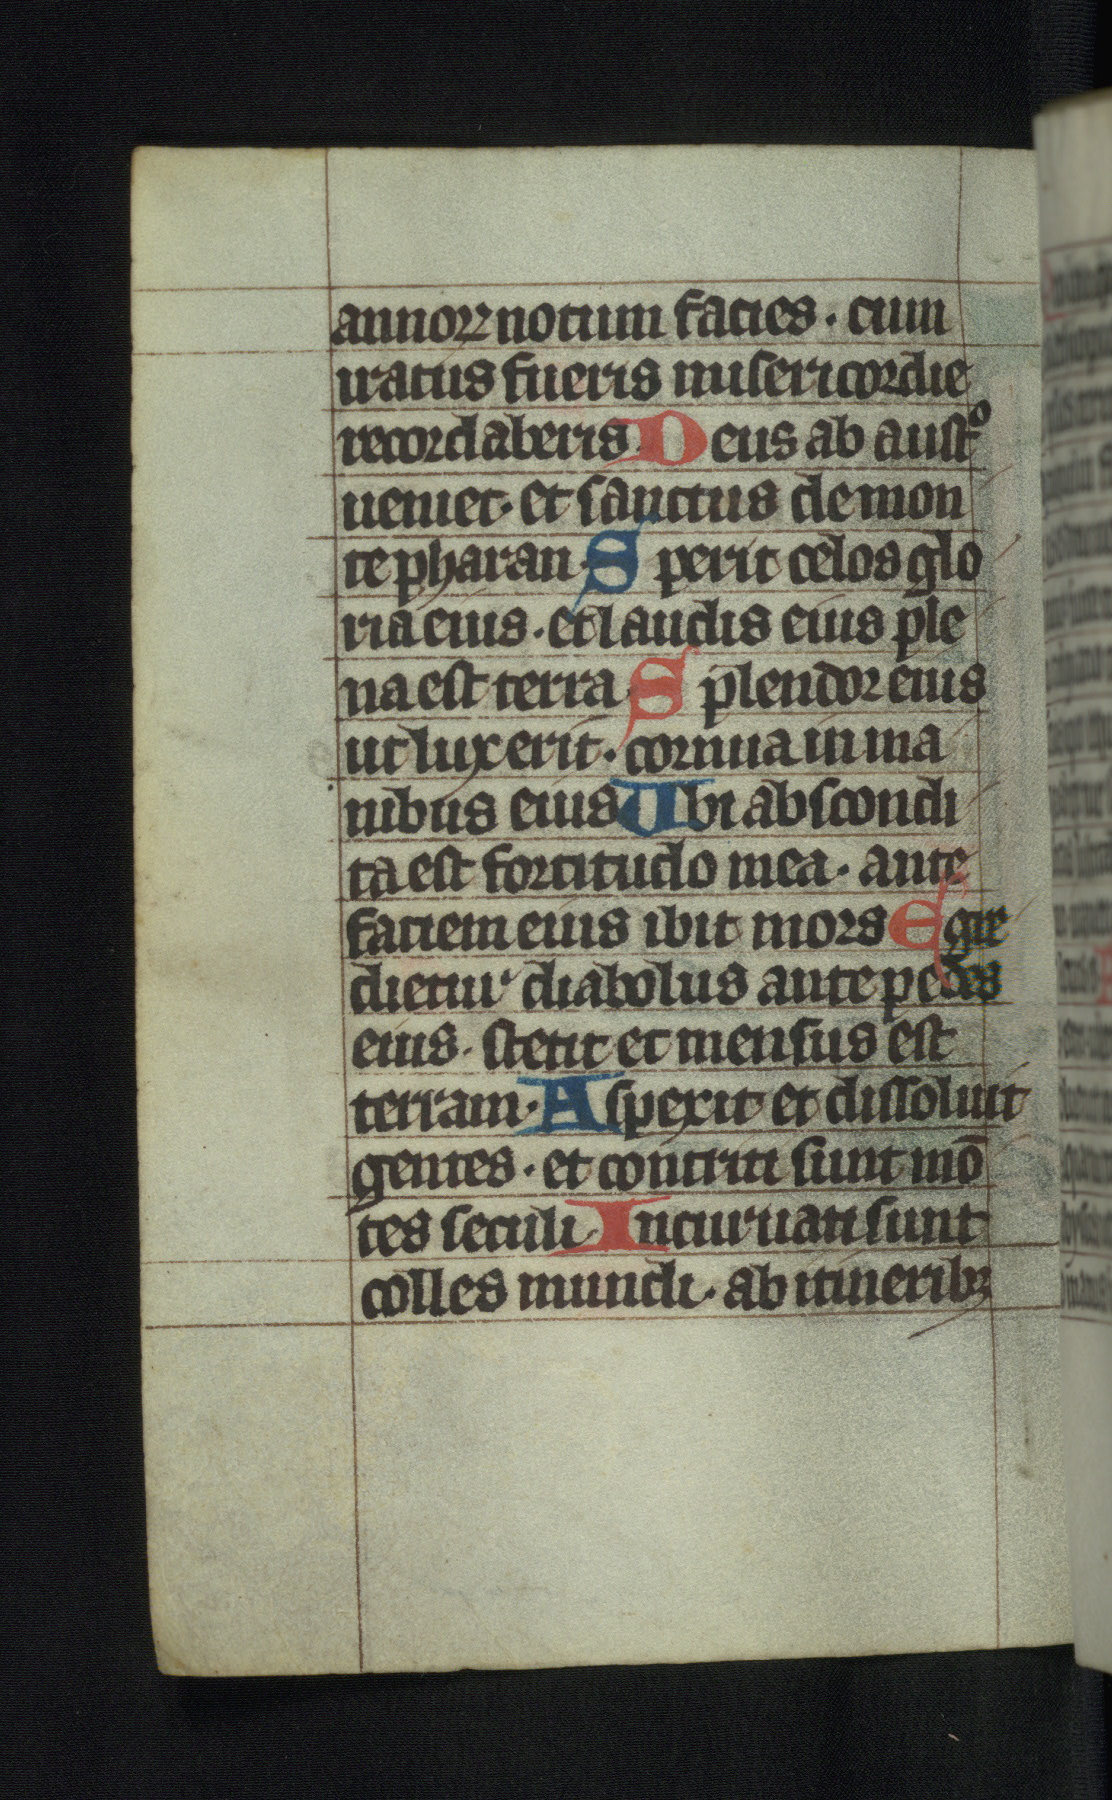 annoꝝ notum facies · cum
iratus fueris misericordie
recordaberis · Deus ab austͦ
ueniet · et sanctus de mon
te pharan · Sperit celos glo
ria eius · et laudis eius ple
na est terra · Splendor eius
ut lux erit · cornua in ma
nibus eius Ubi abscondi
ta est fortitudo mea · ante
faciem eius ibit mors Egre
dietur diabolus ante pedes
eius · stetit et mensus est
terram · Aspexit et dissoluit
gentes · et contriti sunt mō
tes seculi Incuruati sunt
colles mundi · ab itineribꝫ